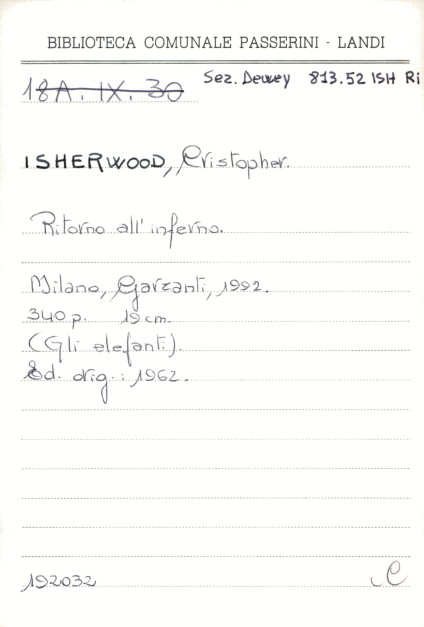 BIBLIOTECA COMUNALE PASSERINI - LANDI
18A. IX. 30 Sez. Dewey 813.52 ISH Ri
ISHERWOOD, Cristopher.
Ritorno all'inferno.
Milano, Garzanti, 1992.
340 p. 19 cm.
(Gli elefanti).
Ed. orig.: 1962.
192032 C